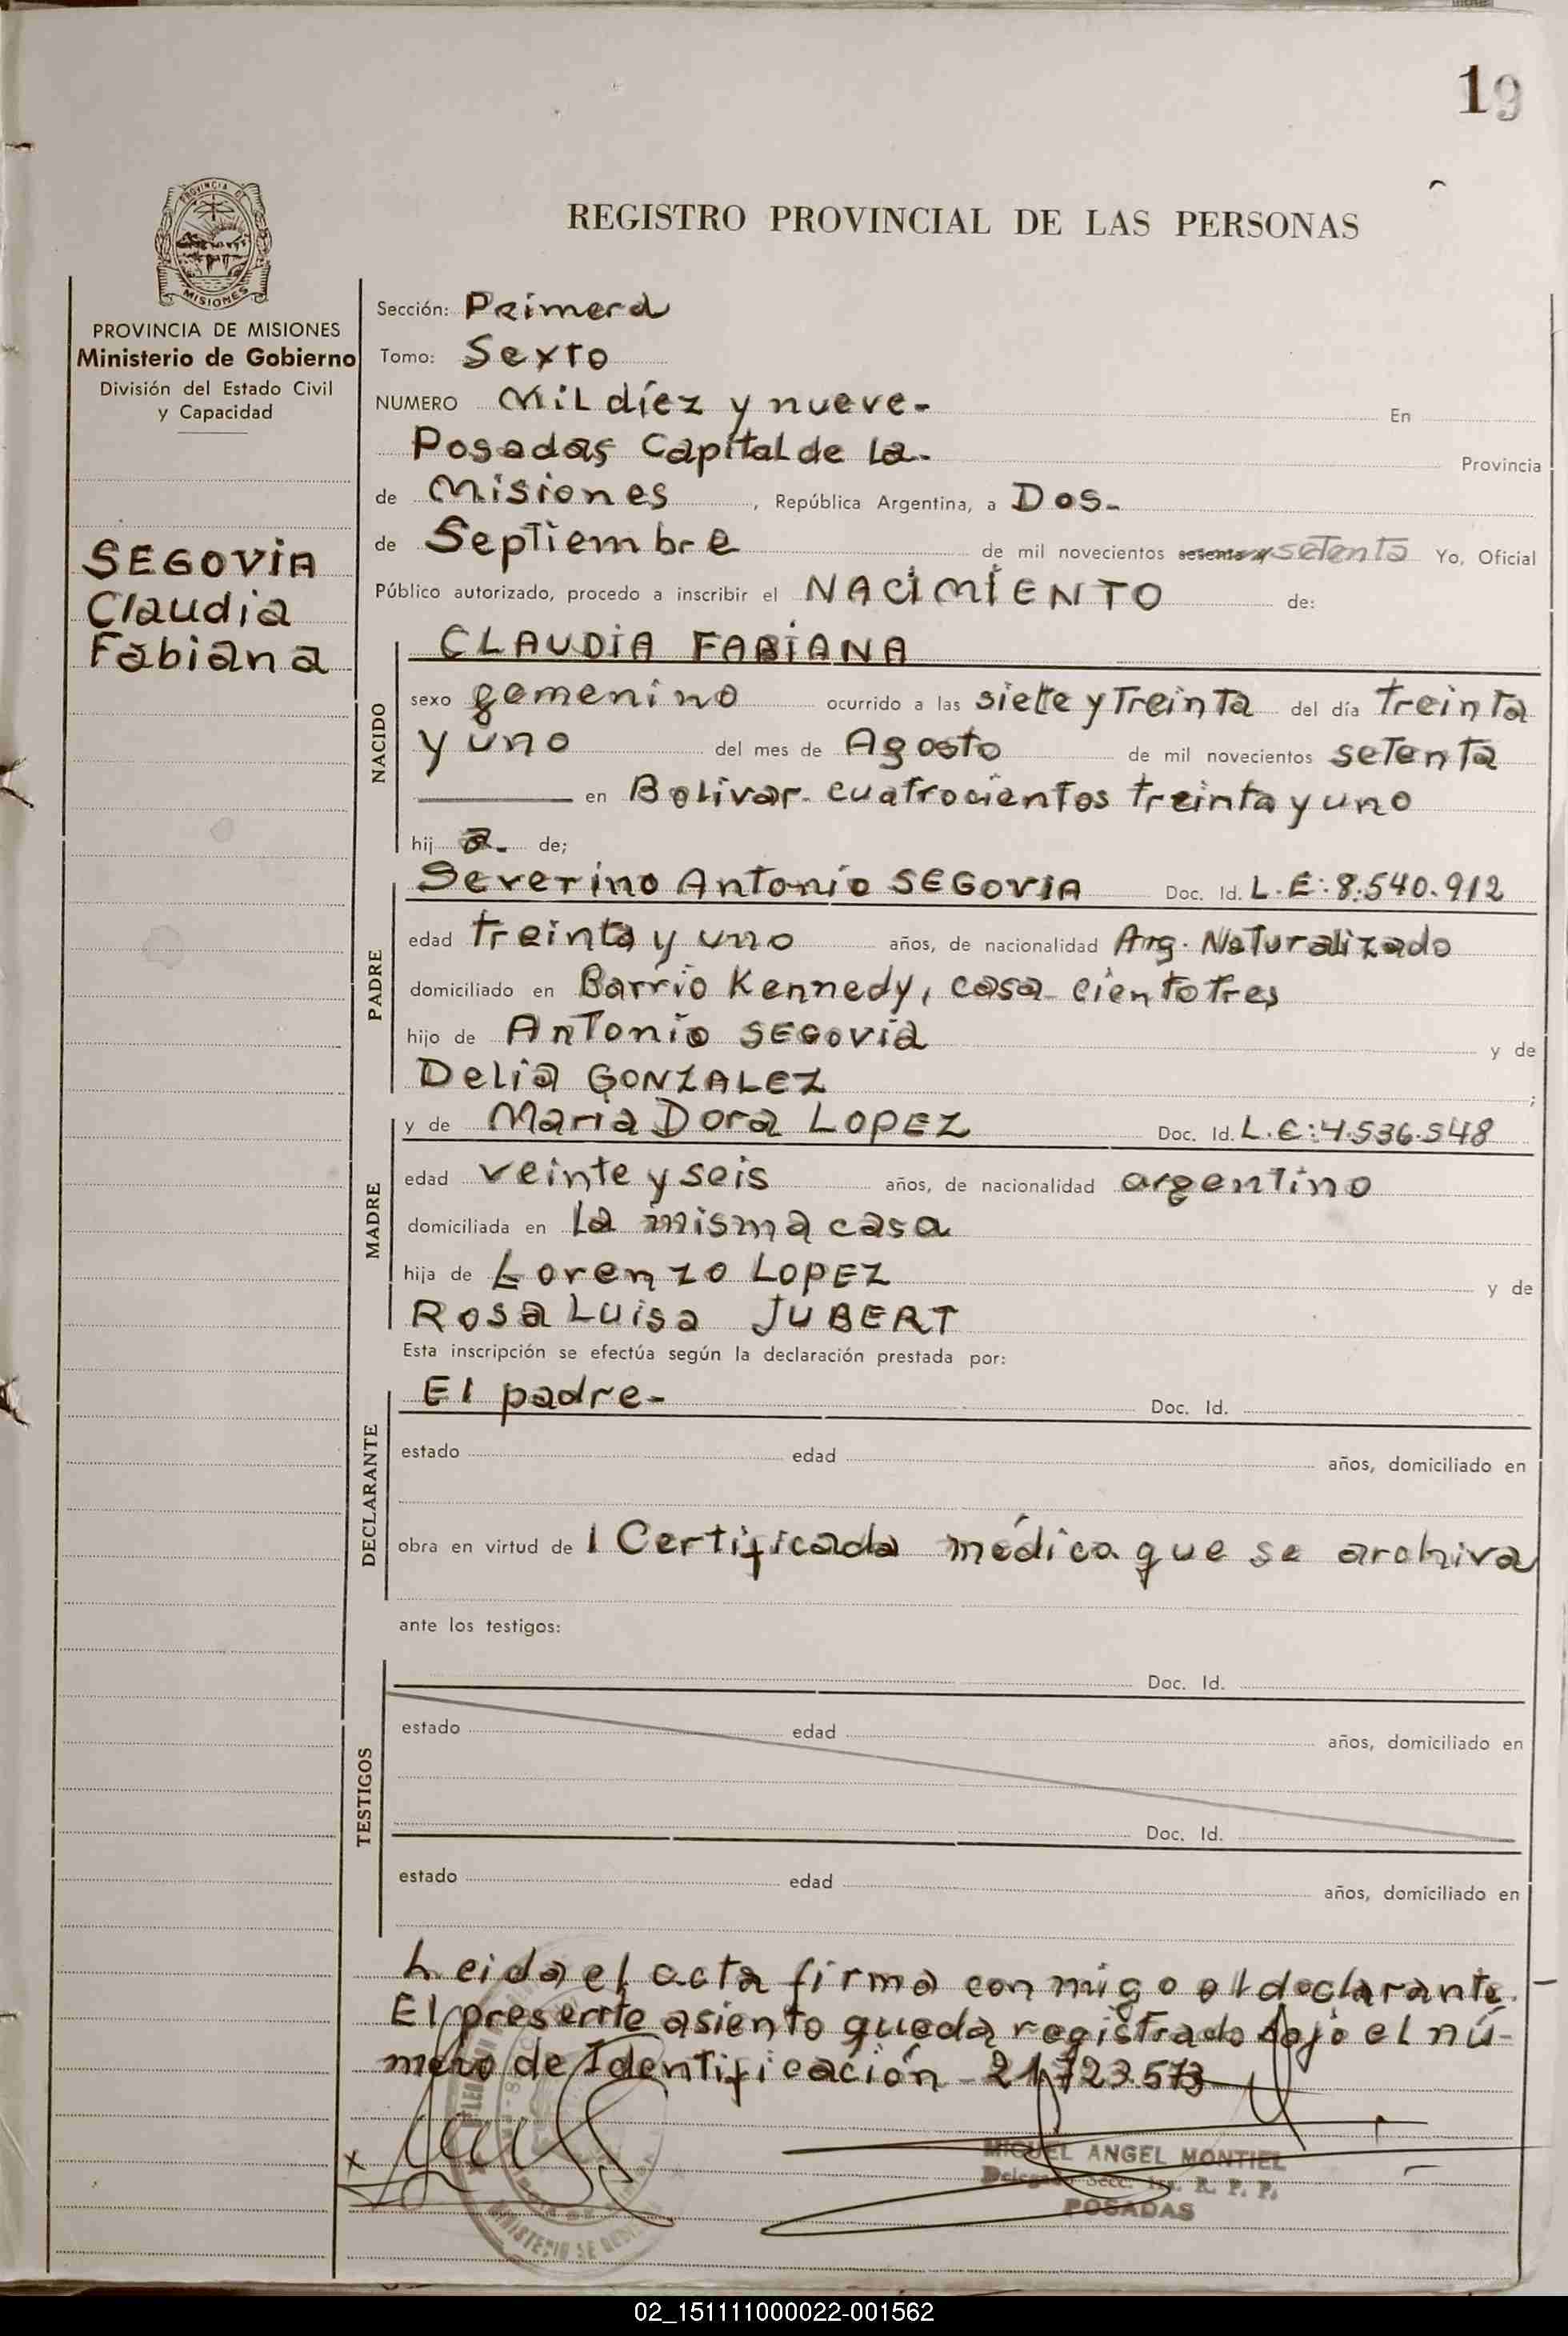 19
REGISTRO PROVINCIAL DE LAS PERSONAS
PROVINCIA DE
MISIONES
PROVINCIA DE MISIONES
Ministerio de Gobierno
División del Estado Civil
y Capacidad
SEGOVIA
Claudia
Fabiana
Sección: Primera
Tomo: Sexto
NUMERO Mil diez y nueve- En
Posadas Capital de la- Provincia
de Misiones, República Argentina, a Dos-
de Septiembre de mil novecientos sesenta y setenta Yo, Oficial
Público autorizado, procedo a inscribir el NACIMIENTO de:
NACIDO
CLAUDIA FABIANA
sexo femenino ocurrido a las siete y Treinta del día treinta
y uno del mes de Agosto de mil novecientos setenta
en Bolivar- cuatrocientos treinta y uno
hija- de;
PADRE
Severino Antonio SEGOVIA Doc. Id. L.E:8.540.912
edad treinta y uno años, de nacionalidad Arg. Naturalizado
domiciliado en Barrio Kennedy, casa ciento tres
hijo de Antonio SEGOVIA y de
Delia GONZALEZ ;
MADRE
y de Maria Dora LOPEZ Doc. Id. L.C:4.536.548
edad veinte y seis años, de nacionalidad argentino
domiciliada en la misma casa
hija de Lorenzo LOPEZ y de
Rosa Luisa JUBERT
Esta inscripción se efectúa según la declaración prestada por:
DECLARANTE
El padre- Doc. Id.
estado edad años, domiciliado en
obra en virtud de 1 Certificada médica que se archiva
ante los testigos:
TESTIGOS
Doc. Id.
estado edad años, domiciliado en
Doc. Id.
estado edad años, domiciliado en
Leida el acta firma conmigo el declarante.-
El presente asiento queda registrado bajo el nú-
mero de Identificación - 21.723.573
MIGUEL ANGEL MONTIEL
Delegado Secc. 1ra. R. P. P.
POSADAS
02_151111000022-001562